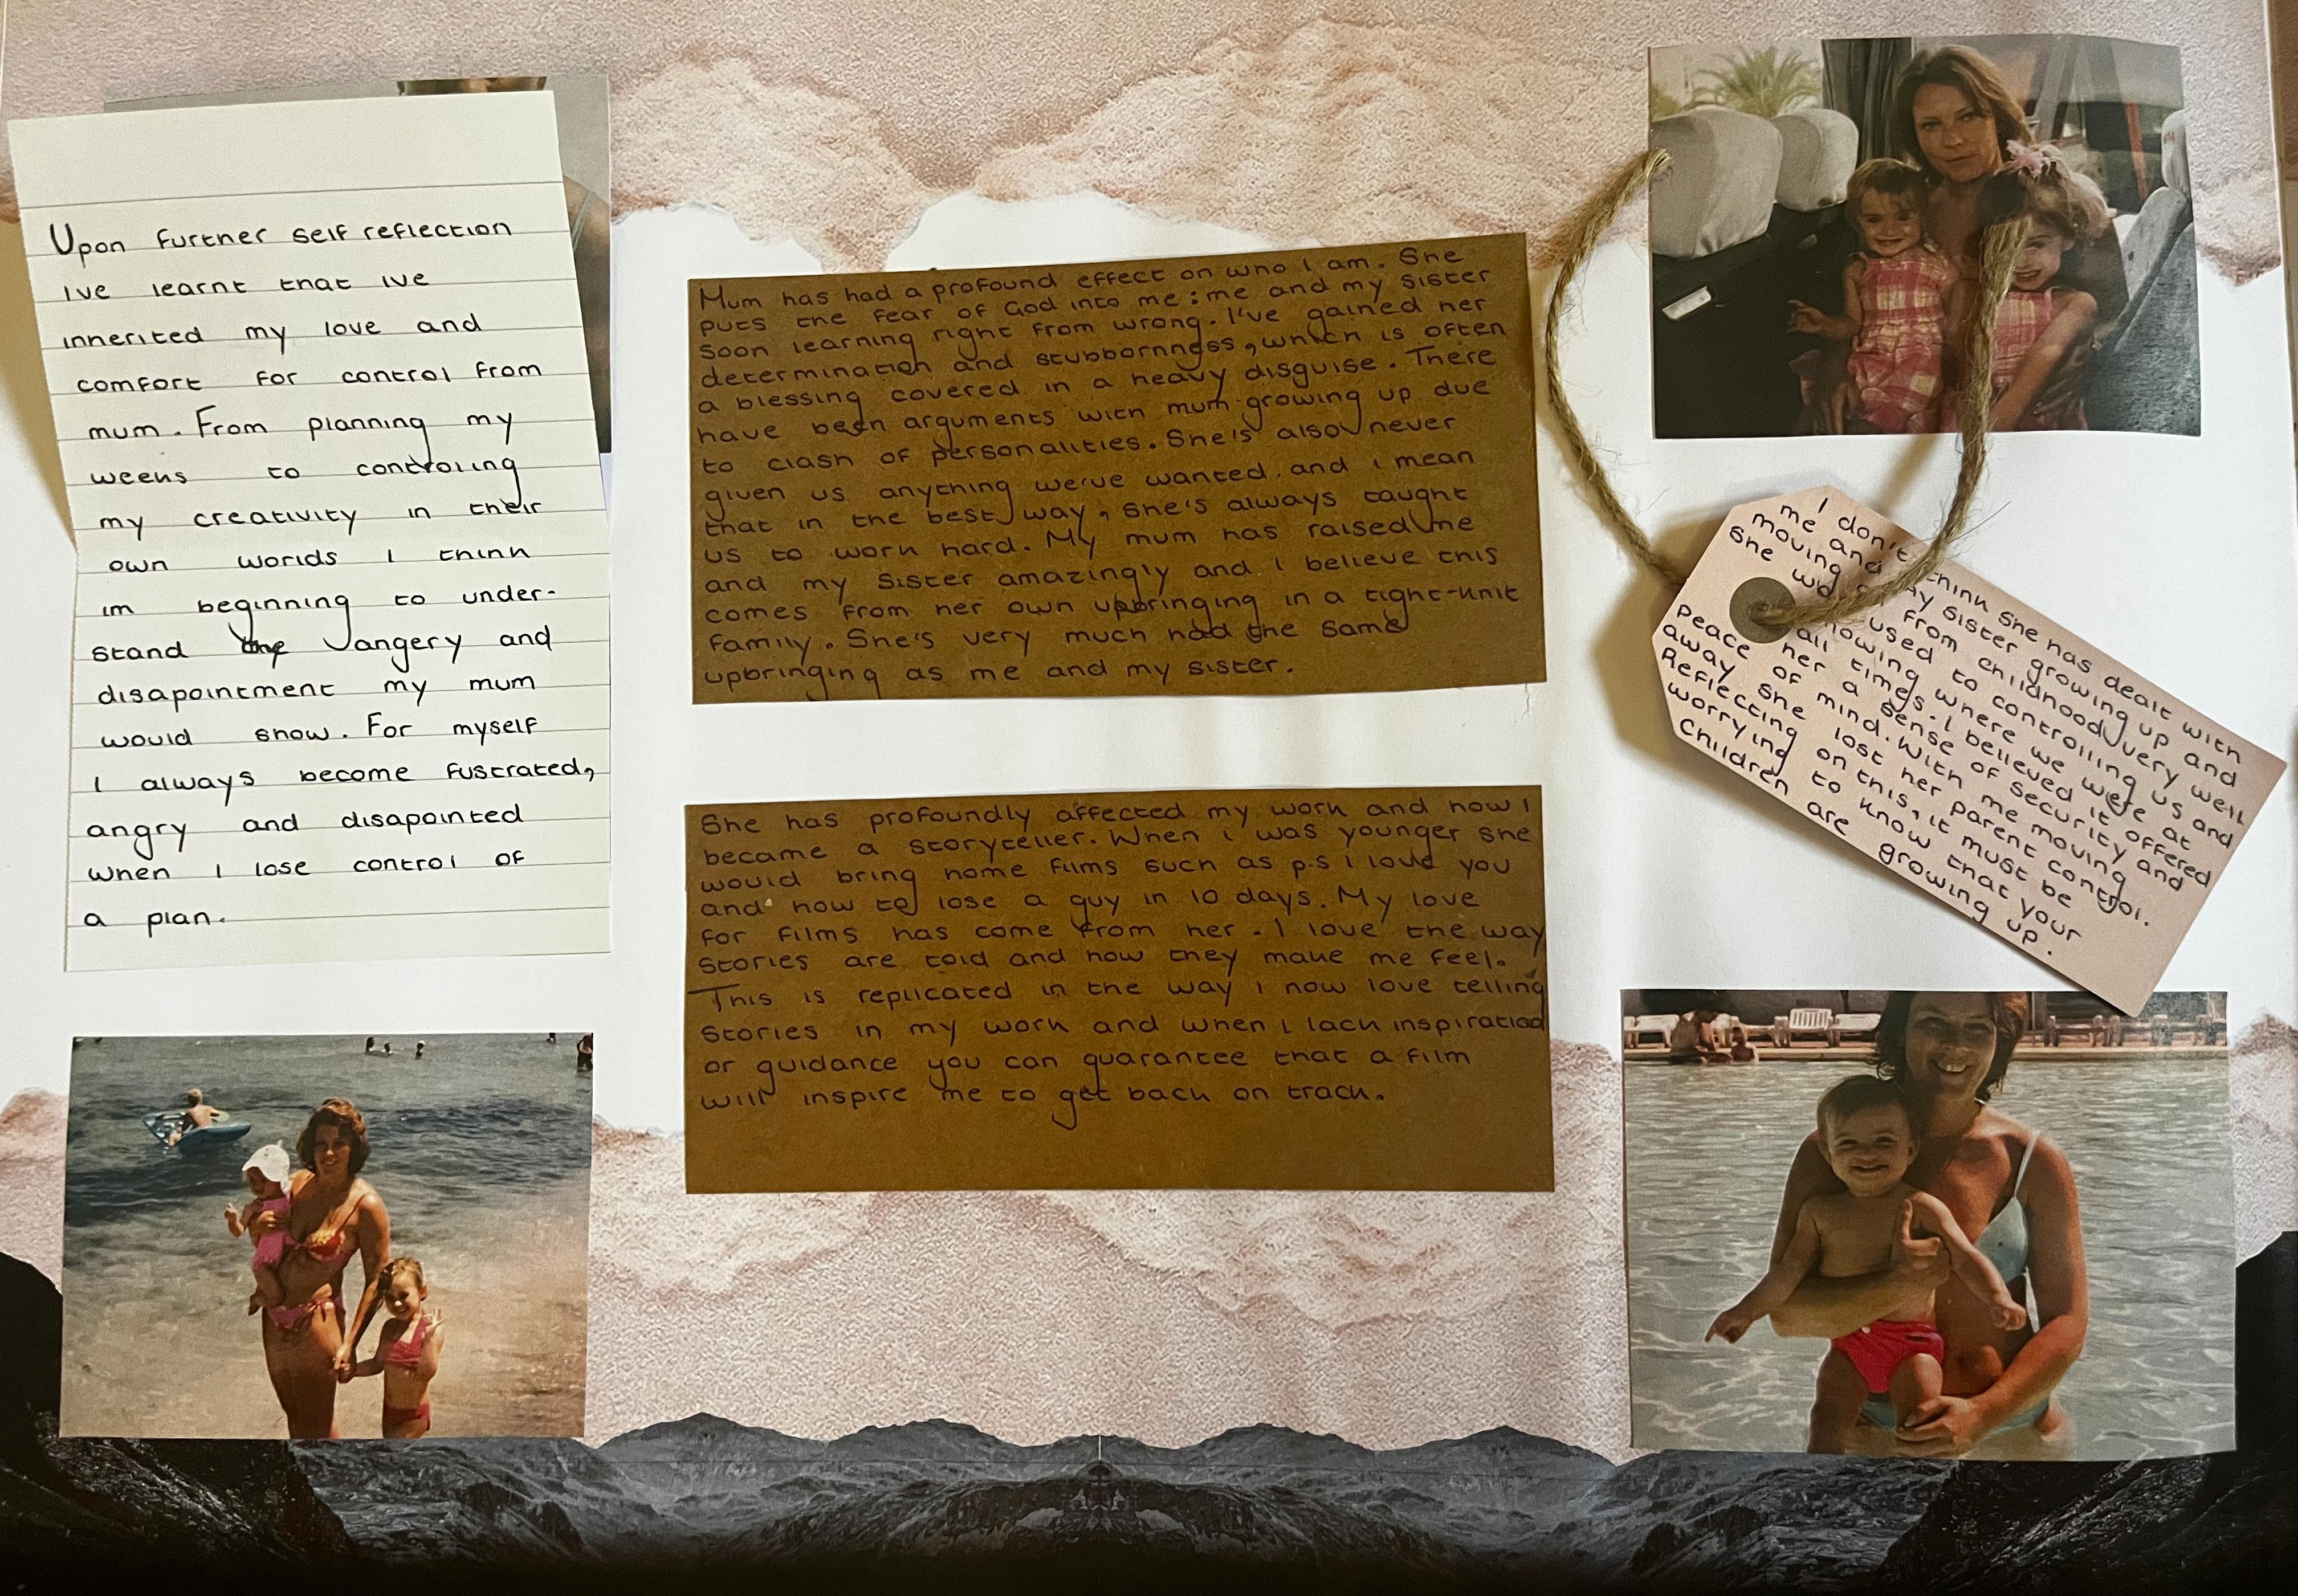 Upon further self reflection
ive learnt that ive
inherited my love and
comfort for control from
mum. From planning my
weeks to controling
my creativity in their
own worlds I think
im beginning to under-
stand the angery and
disapointment my mum
would show. For myself
I always become fustrated,
angry and disapointed
when I lose control of
a plan.
Mum has had a profound effect on who I am. She
puts the fear of God into me: me and my sister
soon learning right from wrong. I've gained her
determination and stubbornness, which is often
a blessing covered in a heavy disguise. There
have been arguments with mum growing up due
to clash of personalities. She's also never
given us anything we've wanted. and i mean
that in the best way, she's always taught
us to work hard. My mum has raised me
and my sister amazingly and I believe this
comes from her own upbringing in a tight-knit
family. She's very much had the same
upbringing as me and my sister.
She has profoundly affected my work and how I
became a storyteller. When i was younger she
would bring home films such as p.s i love you
and how to lose a guy in 10 days. My love
for films has come from her. I love the way
stories are told and how they make me feel.
This is replicated in the way i now love telling
stories in my work and when i lack inspiration
or guidance you can guarantee that a film
will inspire me to get back on track.
I don't think she has dealt with
me and my sister growing up and
moving from childhood very well
She was used to controlling us and
knowing where we were at
all times. I believed it offered
her a sense of security and
peace of mind. With me moving
away she lost her parent control.
Reflecting on this, it must be
worrying to know that your
children are growing up.